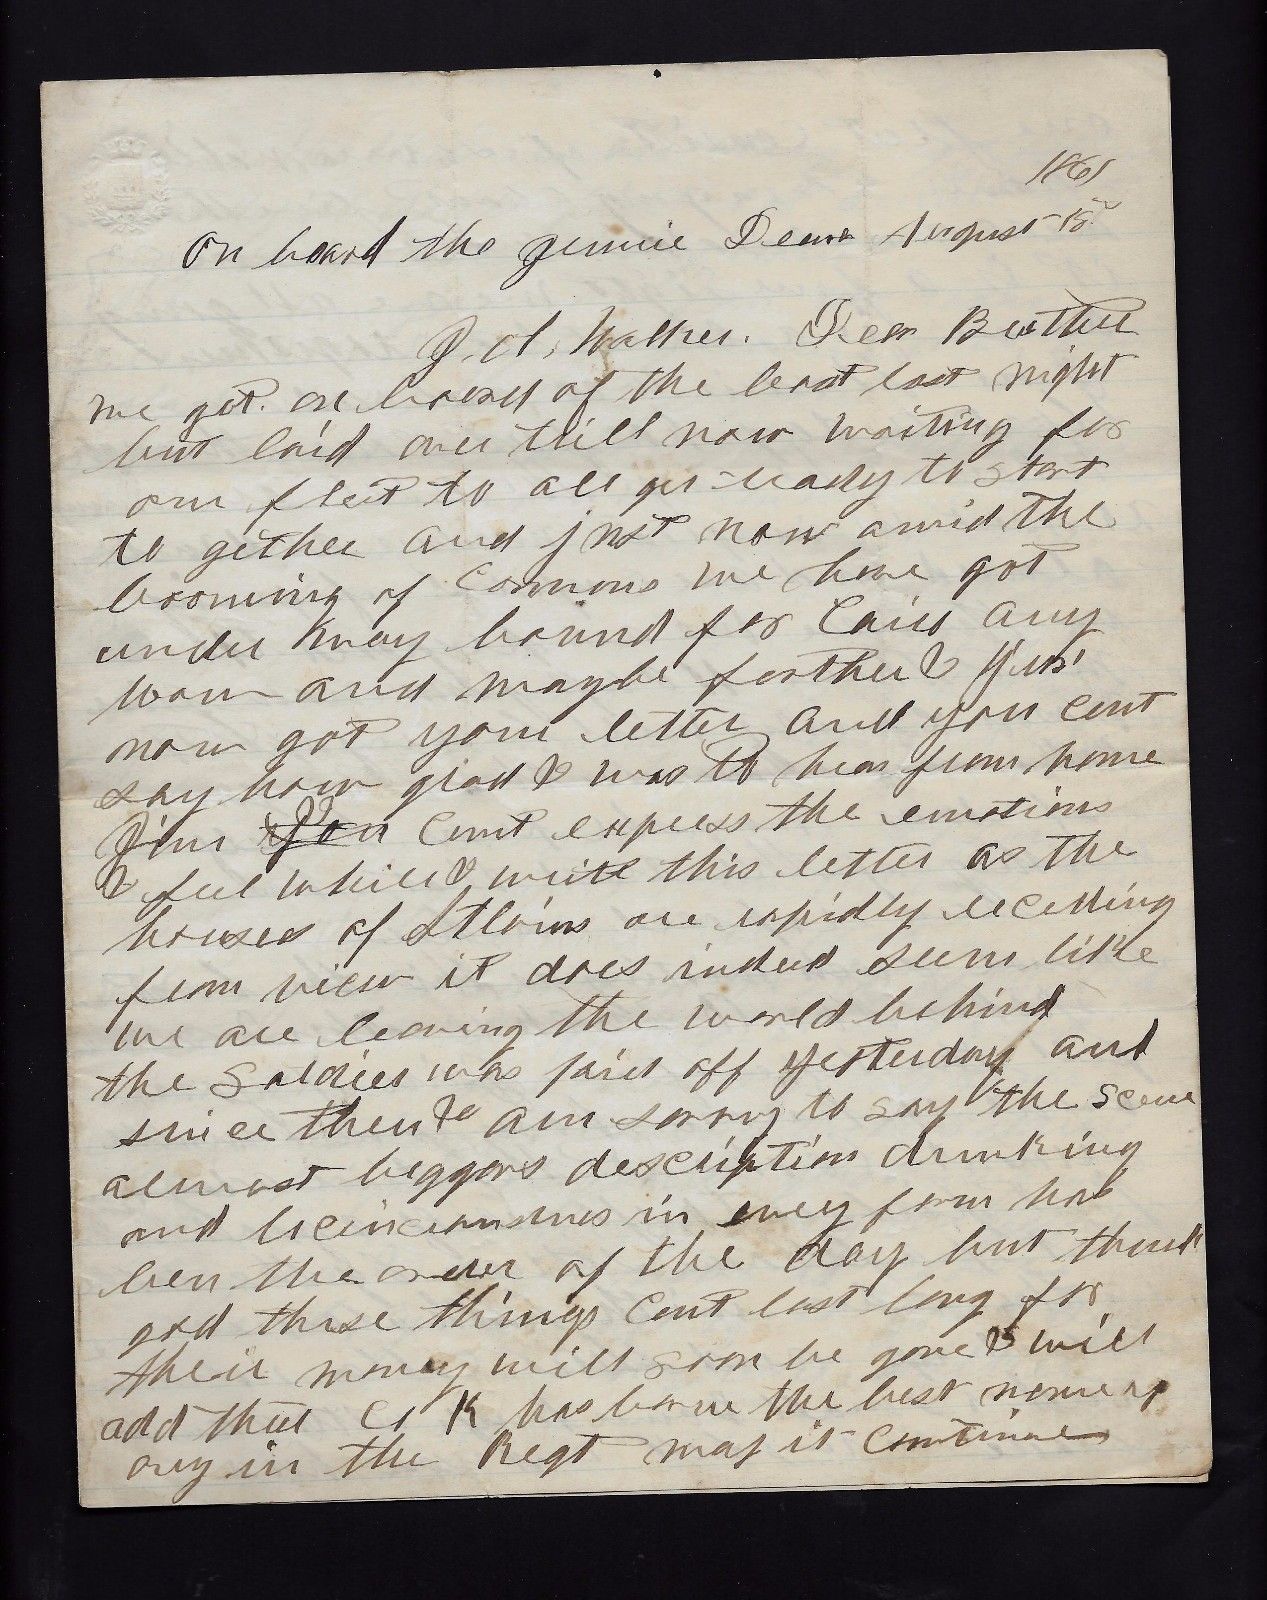 1861
On board the Jennie Deans August 15th
J. A. Walker. Dear Brother
we got on board of the boat last night
but laid over till now waiting for
our fleet to all get ready to start
to gether and just now amid the
booming of Cannons we have got
under way bound for Cairo any
way and maybe farther I Just
now got your letter and you cant
say how glad I was to hear from home
Jim You cant express the emotions
I feel while I write this letter as the
houses of St Louis are rapidly receding
from view it does indeed seem like
we are leaving the world behind
the Soldiers was paid off yesterday and
since then I am sorry to say the scene
almost beggars description drinking
and in every form has
ben the order of the day but thank
god these things cant last long for
their money will soon be gone I will
add that Co K has borne the best name of
any in the Regt may it continue